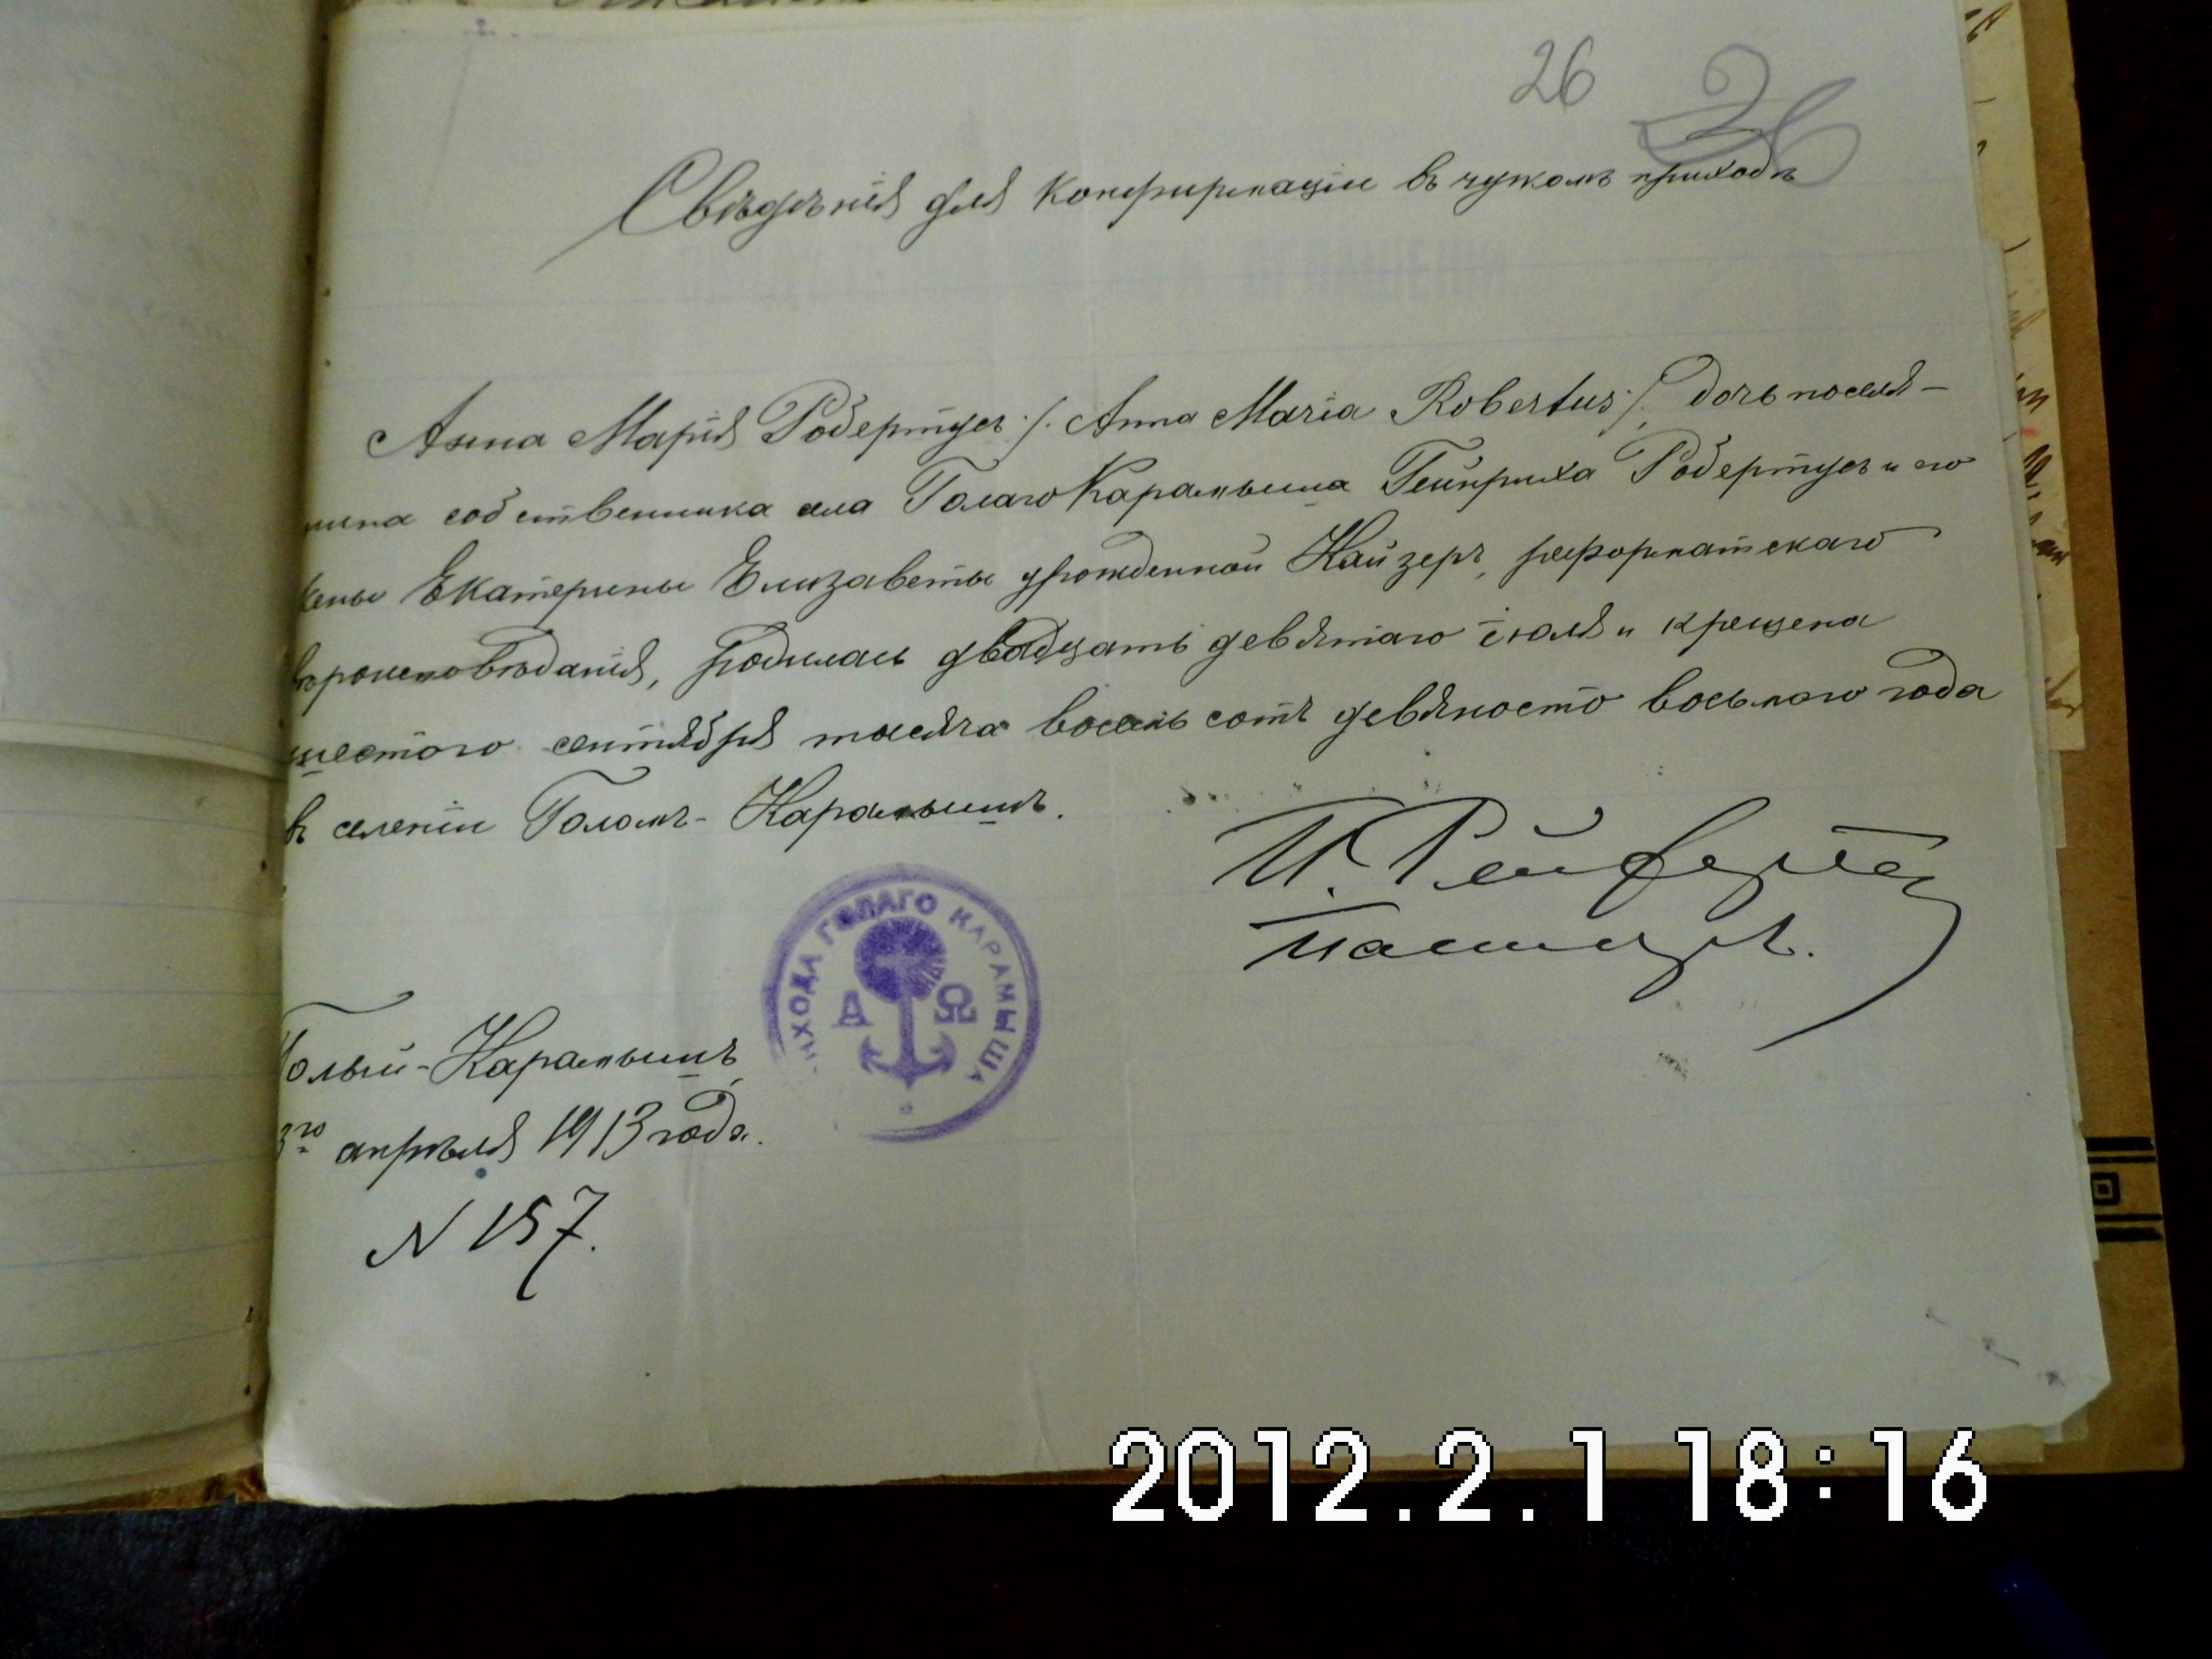 26 26
Свѣдѣнія для конфирмаціи въ чужомъ приходѣ
Анна Марія Робертусъ /. Anna Maria Robertus /. дочь поселя-
нина собственника села Голаго Карамыша Гейнриха Робертусъ и его
жены Екатерины Елизаветы урожденной Кайзеръ, реформатскаго
вѣроисповѣданія, родилась двадцать девятаго іюля и крещена
шестого сентября тысяча восемь сотъ девяносто восьмого года
въ селеніи Голомъ-Карамышѣ.
И. Рейферта
Пасторъ.
ИХОДА ГОЛАГО КАРАМЫША
Α Ω
Голый-Карамышъ
3го апрѣля 1913 года.
N 157.
2012.2.1 18:16